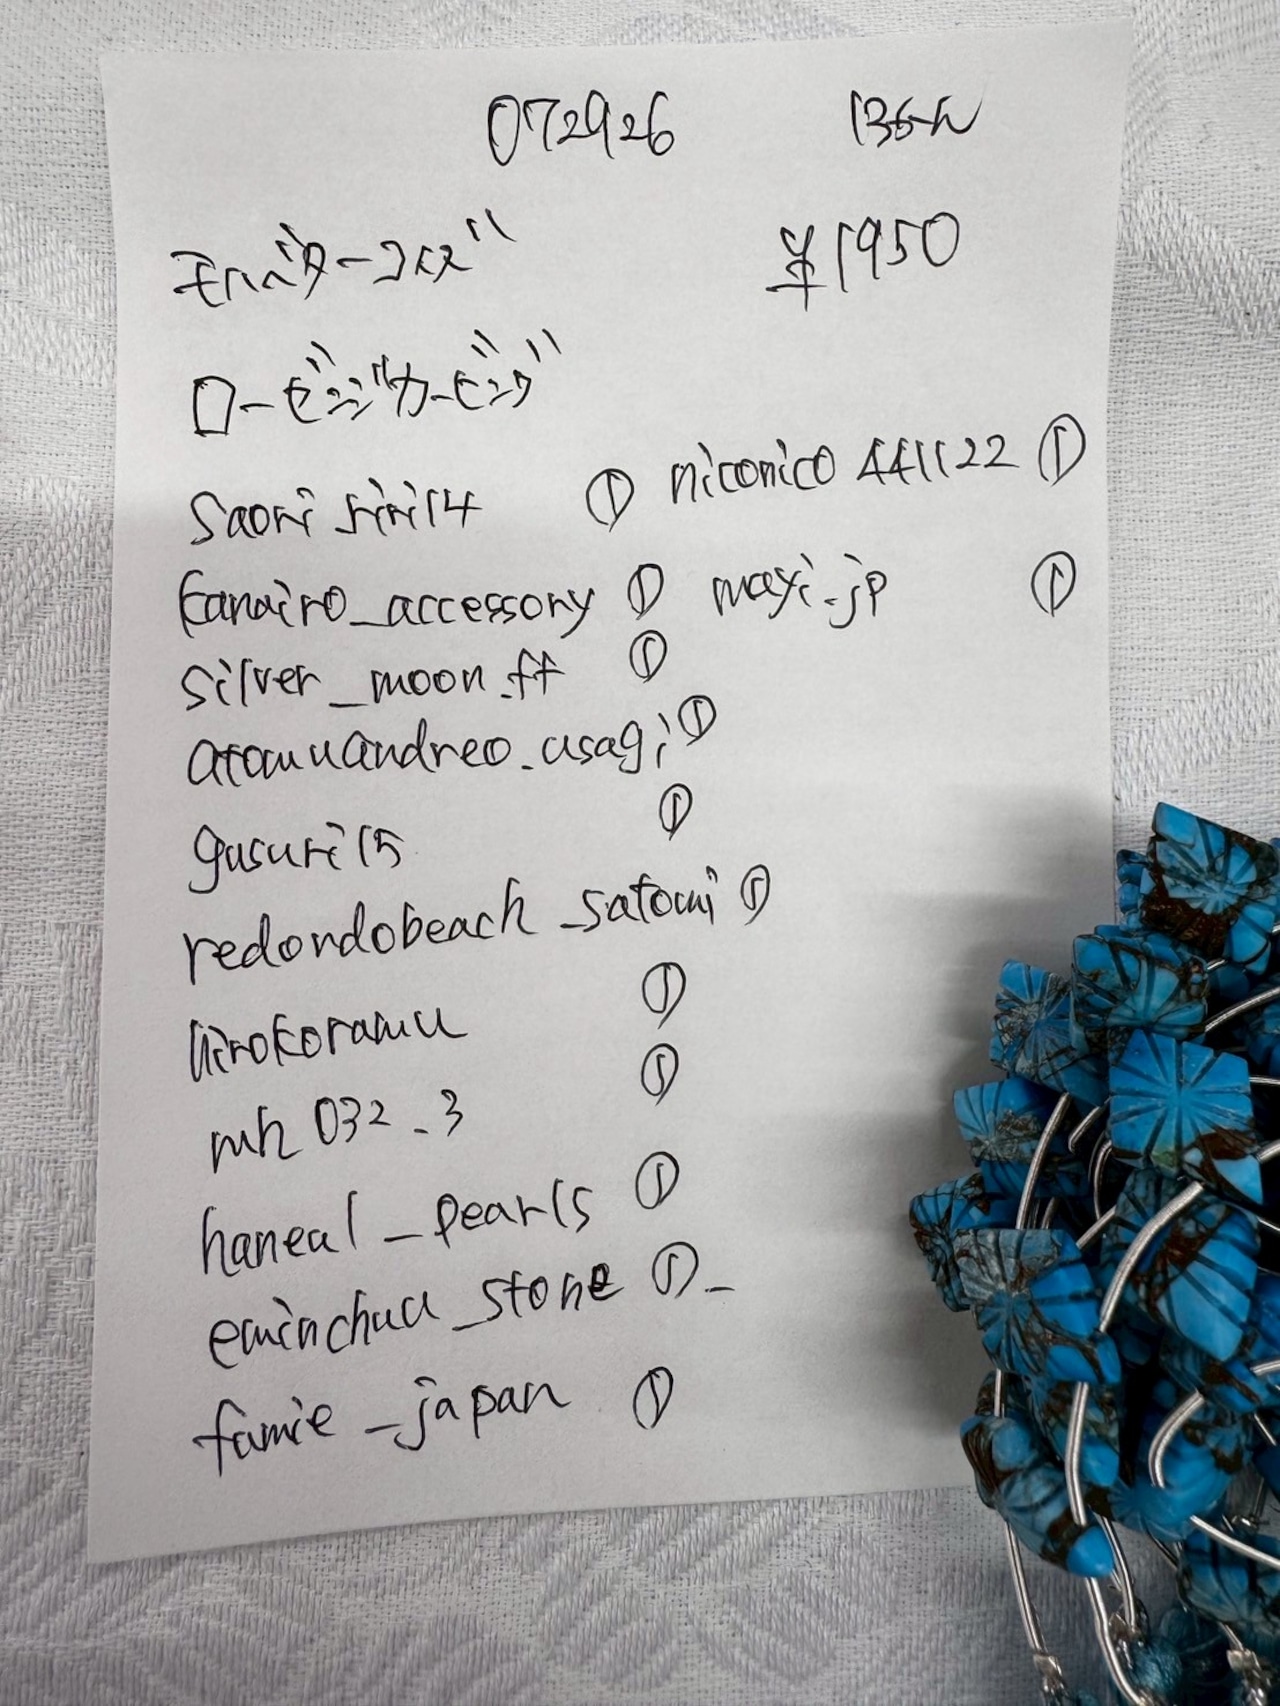 072926
¥1950
モハベターコイズ
ローゼンジカービング
saorisiri14 ①
niconico441122 ①
kanairo_accessory ①
mayi.jp ①
silver_moon.ff ①
atomuandreo.usagi ①
gusuri15 ①
redondobeach_satomi ①
hirokoramu ①
mh032.3 ①
haneal_pearls ①
eminchuu_stone ①
famie_japan ①